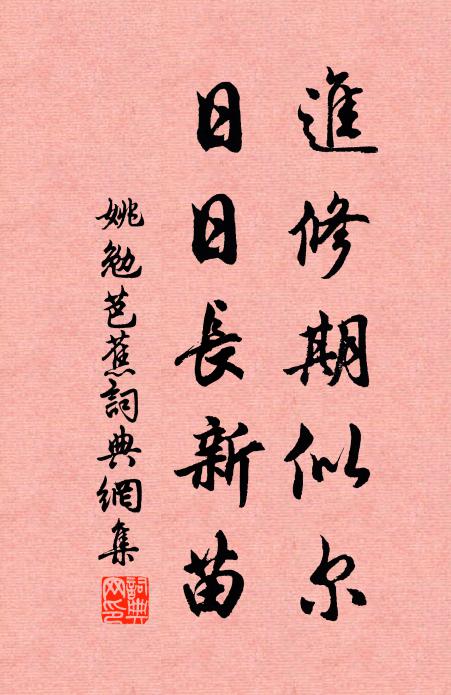 進修期似尔
日日長新苗
姚勉芭蕉詞典網集
詞典网印